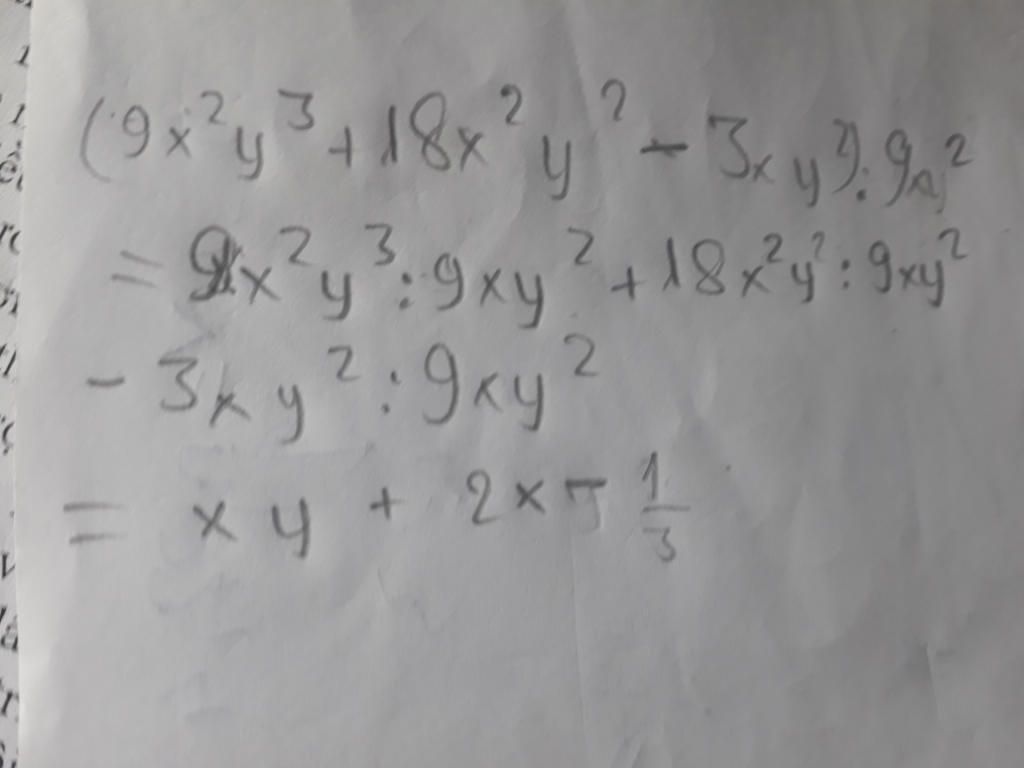 (9x²y³ + 18x²y² - 3xy²) : 9xy²
= 9x²y³ : 9xy² + 18x²y² : 9xy²
- 3xy² : 9xy²
= xy + 2x - 1/3